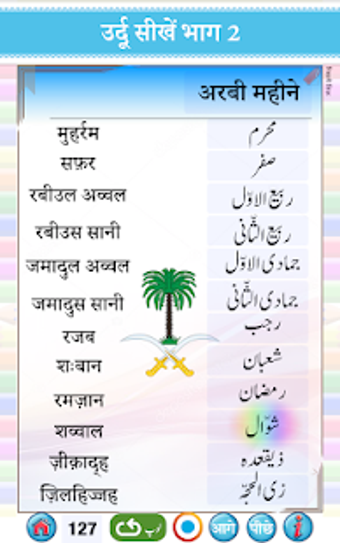 उर्दू सीखें भाग 2
अरबी महीने
मुहर्रम محرم
सफ़र صفر
रबीउल अव्वल ربیع الاوّل
रबीउस सानी ربیع الثّانی
जमादुल अव्वल جمادی الاوّل
जमादुस सानी جمادی الثّانی
रजब رجب
शःबान شعبان
रमज़ान رمضان
शव्वाल شوّال
ज़ीक़ाद्ह ذیقعدہ
ज़िलहिज्जह ذی الحجّہ
127 آگے आगे पीछे i